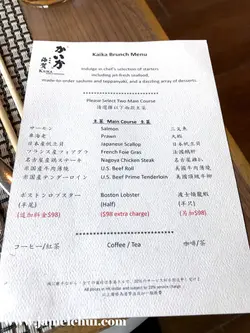 かい
海賀
KAIKA
Kaika Brunch Menu
Indulge in chef's selection of starters
including jet-fresh seafood,
made-to-order sashimi and teppanyaki, and a dazzling array of desserts.
Please Select Two Main Course
請選擇以下兩款主菜
主菜 Main Course 主菜
サーモン Salmon 三文魚
海老 Prawn 大蝦
日本産帆立貝 Japanese Scallop 日本帆立貝
フランス産フォアグラ French Foie Gras 法國鵝肝
名古屋産鶏ステーキ Nagoya Chicken Steak 名古屋雞扒
米国産牛肉薄焼 U.S. Beef Roll 美國薄燒牛肉
米国産テンダーロイン U.S. Beef Prime Tenderloin 美國頂級牛柳
ボストンロブスター Boston Lobster 波士頓龍蝦
(半尾) (Half) (半隻)
(追加料金$98) ($98 extra charge) (另加$98)
コーヒー/紅茶 Coffee / Tea 咖啡/茶
All prices in HK dollar and subject to 10% service charge
www.japhetchui.com